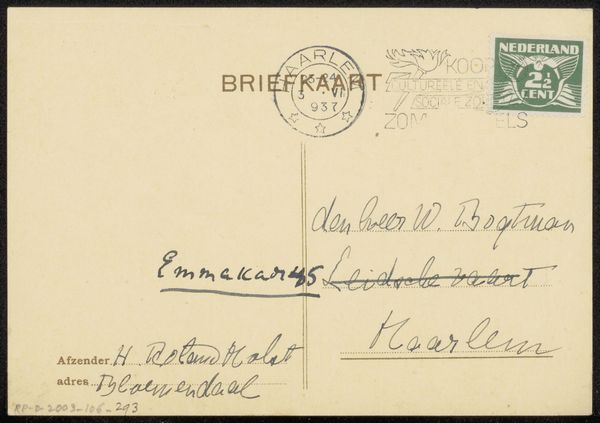 HAARLEM
3 VI
937
BRIEFKAART
KOO
CULTUREELE EN
SOCIALE ZO
ZOM ELS
NEDERLAND
2½
CENT
den heer W. Bogtman
Emmakade 45 Leidsche vaart
Haarlem
Afzender H. Roland Holst
adres Bloemendaal
RP-D-2003-106-293